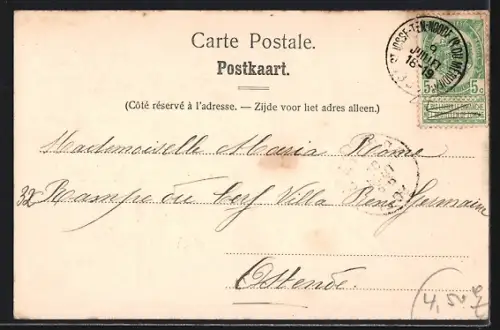 Carte Postale.
Postkaart.
(Côté réservé à l'adresse. — Zijde voor het adres alleen.)
ST JOSSE-TEN-NOODE
6
JUILLET
16-19
5c 5c
Mademoiselle Maria
32 Rampe du Cerf Villa René Germaine
Ostende.
4,50